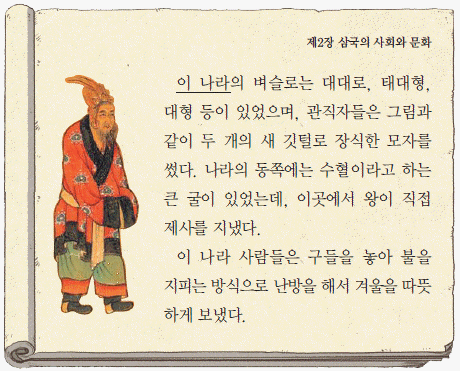 제2장 삼국의 사회와 문화
이 나라의 벼슬로는 대대로, 태대형,
대형 등이 있었으며, 관직자들은 그림과
같이 두 개의 새 깃털로 장식한 모자를
썼다. 나라의 동쪽에는 수혈이라고 하는
큰 굴이 있었는데, 이곳에서 왕이 직접
제사를 지냈다.
이 나라 사람들은 구들을 놓아 불을
지피는 방식으로 난방을 해서 겨울을 따뜻
하게 보냈다.